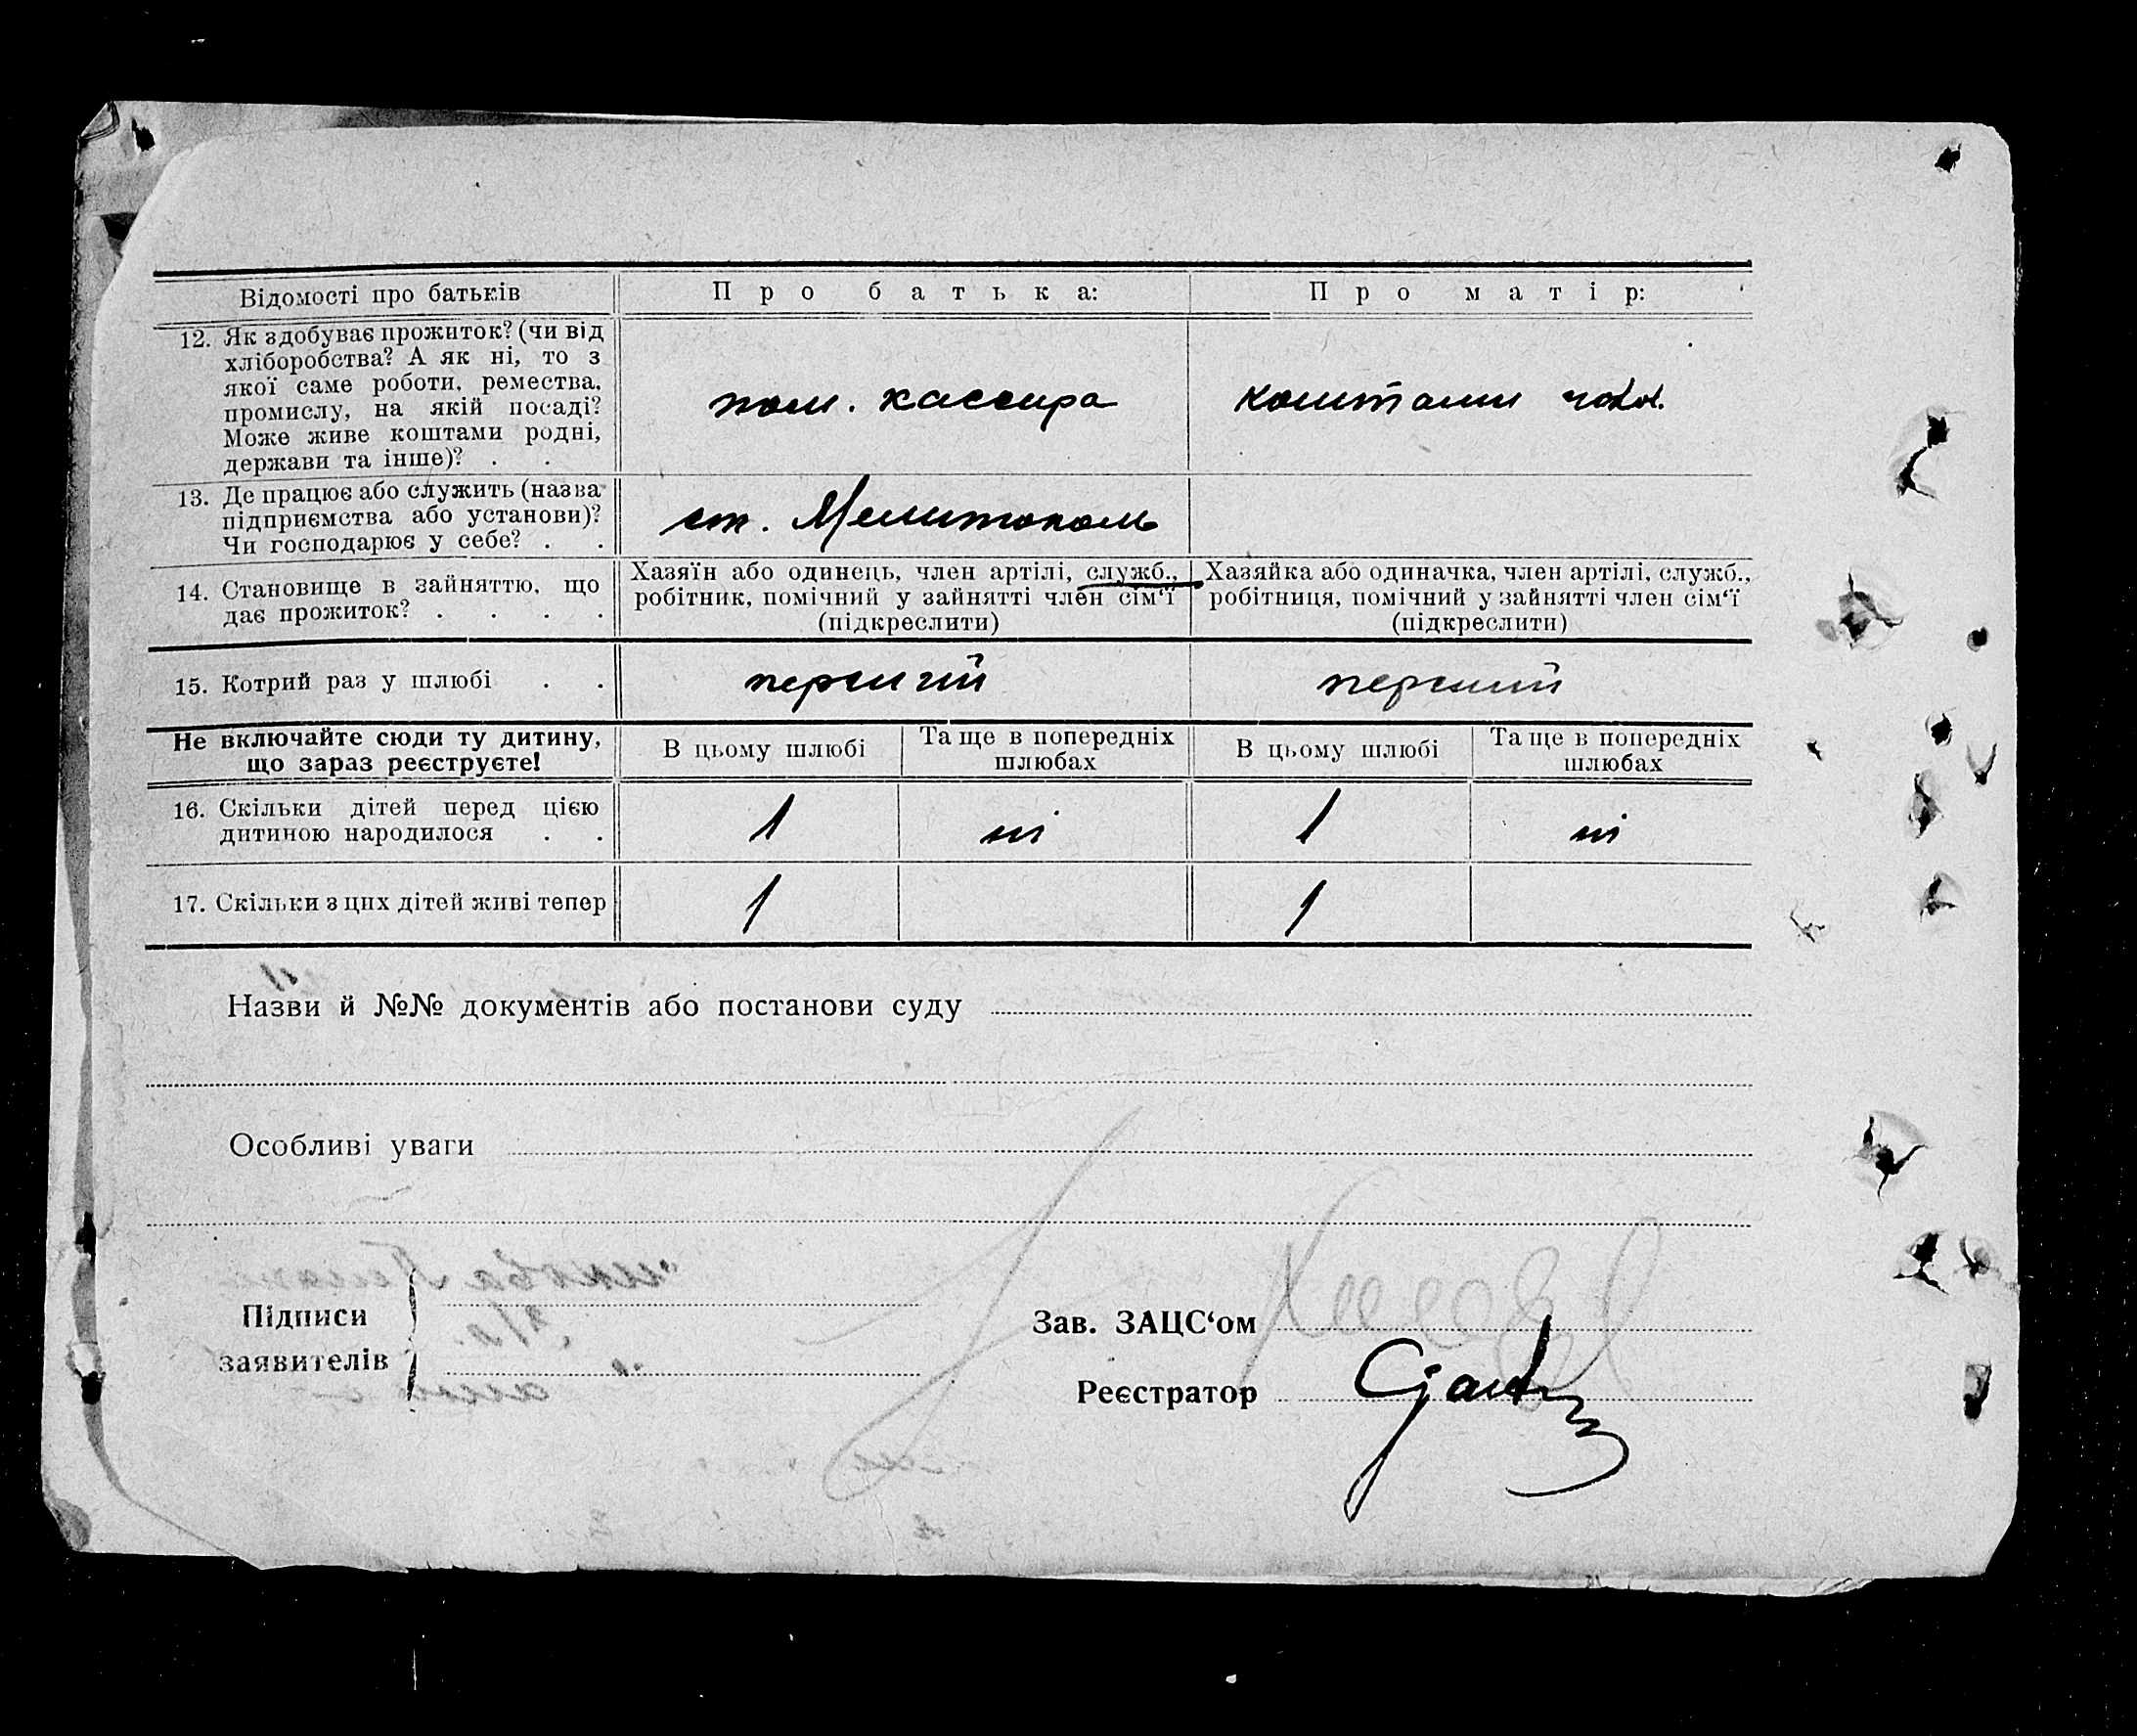 Відомості про батьків
Про батька:
Про матір:
12. Як здобуває прожиток? (чи від
хліборобства? А як ні, то з
якої саме роботи, ремества,
промислу, на якій посаді?
Може живе коштами родні,
держави та інше)? . .
пом. кассира
коштами
13. Де працює або служить (назва
підприємства або установи)?
Чи господарює у себе? . .
ст. Мелитополь
14. Становище в зайняттю, що
дає прожиток? . . . .
Хазяїн або одинець, член артілі, служб.,
робітник, помічний у зайнятті член сім‘ї
(підкреслити)
Хазяйка або одиначка, член артілі, служб.,
робітниця, помічний у зайнятті член сім‘ї
(підкреслити)
15. Котрий раз у шлюбі . .
перший
перший
Не включайте сюди ту дитину,
що зараз реєструєте!
В цьому шлюбі
Та ще в попередніх
шлюбах
В цьому шлюбі
Та ще в попередніх
шлюбах
16. Скільки дітей перед цією
дитиною народилося . .
1
ні
1
ні
17. Скільки з цих дітей живі тепер
1
1
Назви й №№ документів або постанови суду
Особливі уваги
Підписи
заявителів
Зав. ЗАЦС‘ом
Реєстратор